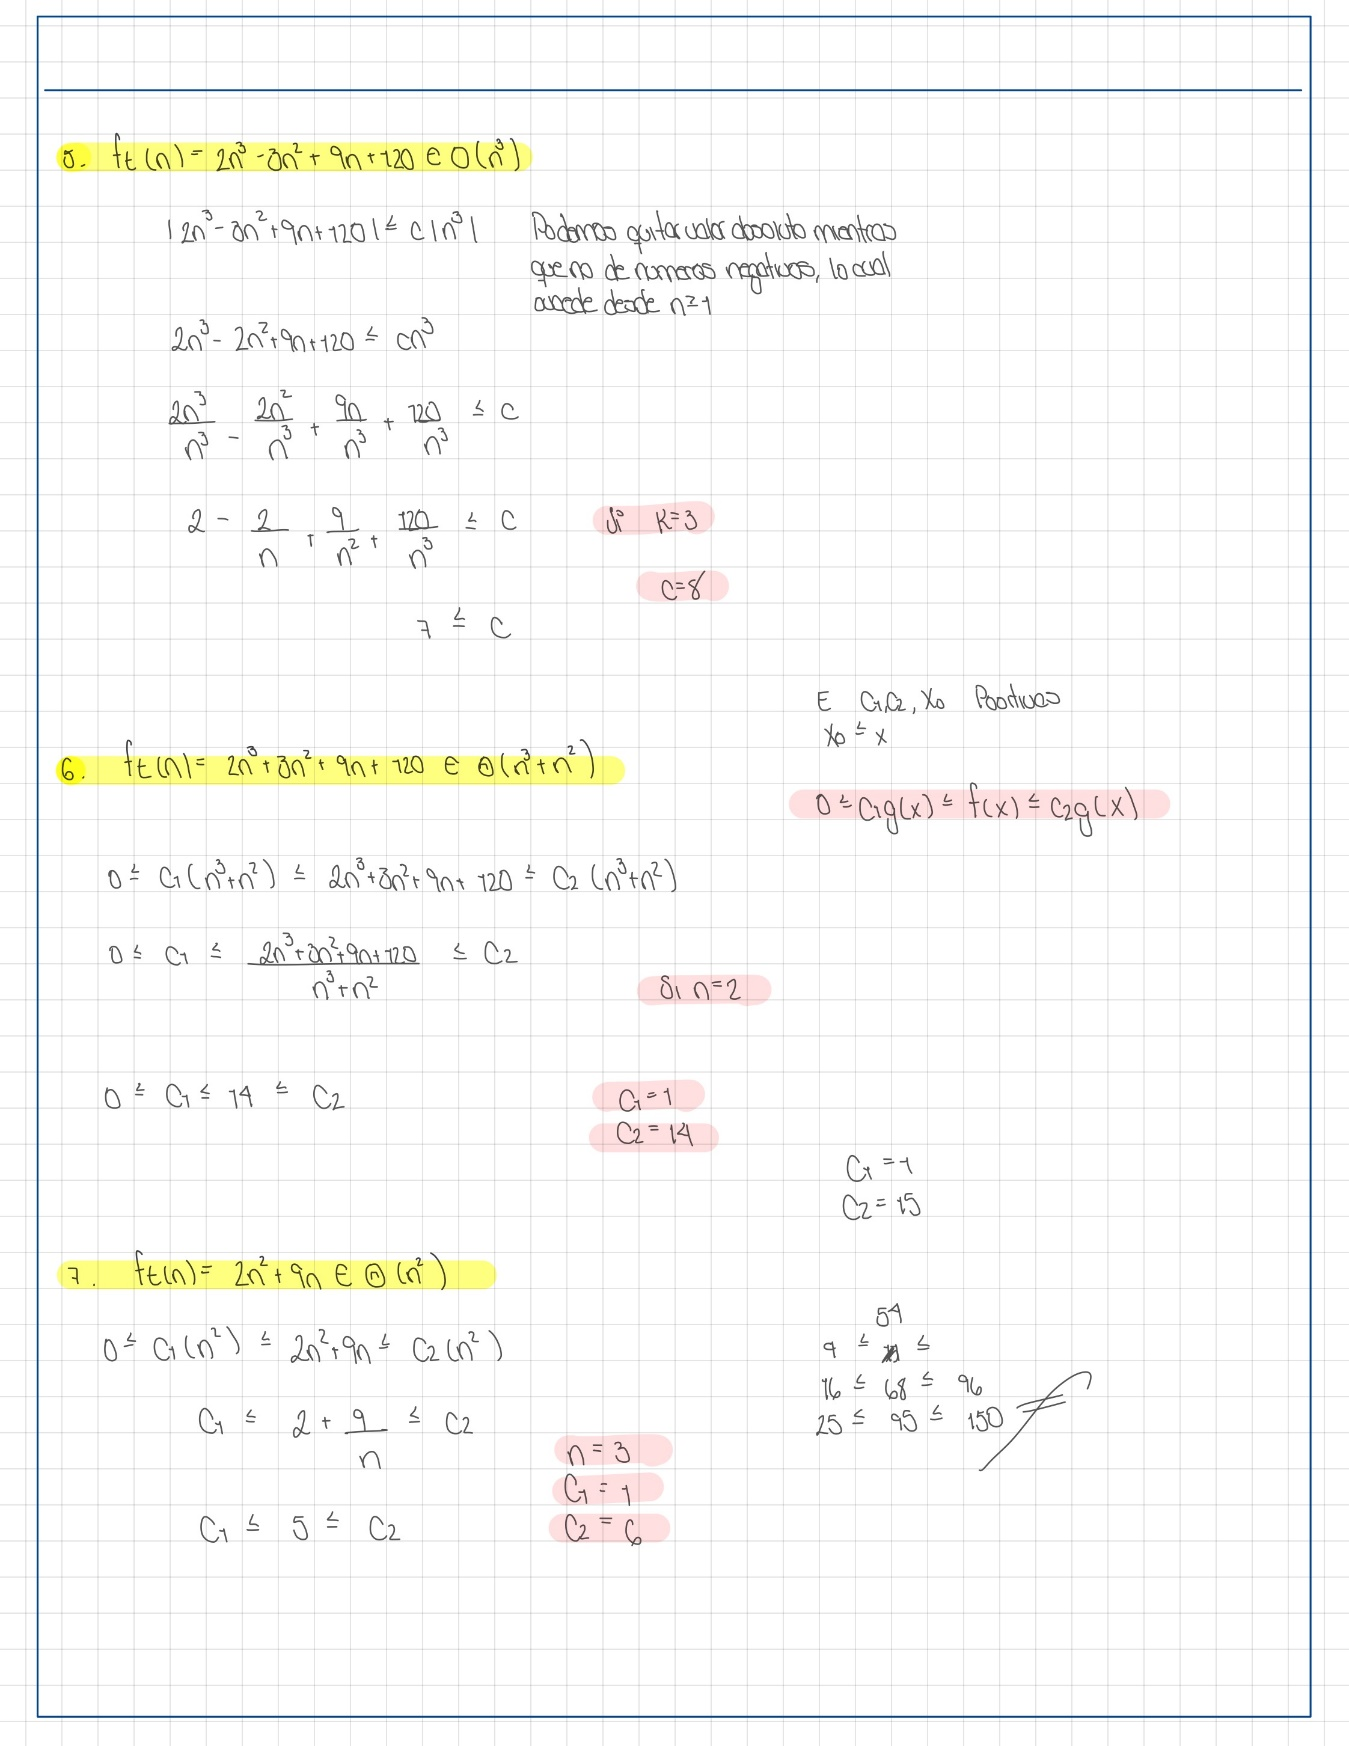 5. ft(n) = 2n³ - 3n² + 9n + 120 ∈ O(n³)
|2n³ - 3n² + 9n + 120| ≤ c|n³| Podemos quitar valor absoluto mientras
que no de numeros negativos, lo cual
sucede desde n=1
2n³ - 2n² + 9n + 120 ≤ cn³
2n³/n³ - 2n²/n³ + 9n/n³ + 120/n³ ≤ C
2 - 2/n + 9/n² + 120/n³ ≤ C Si K=3
C=8
7 ≤ C
E C1,C2, X0 Positivas
X0 ≤ x
6. ft(n) = 2n³ + 3n² + 9n + 120 ∈ Θ(n³+n²)
0 ≤ C1g(x) ≤ f(x) ≤ C2g(x)
0 ≤ C1(n³+n²) ≤ 2n³+3n²+9n+120 ≤ C2(n³+n²)
0 ≤ C1 ≤ 2n³+3n²+9n+120/n³+n² ≤ C2
Si n=2
0 ≤ C1 ≤ 14 ≤ C2 C1=1
C2=14
C1=1
C2=15
7. ft(n) = 2n² + 9n ∈ Θ(n²)
54
0 ≤ C1(n²) ≤ 2n²+9n ≤ C2(n²) 9 ≤ ≤
16 ≤ 68 ≤ 96
C1 ≤ 2 + 9/n ≤ C2 25 ≤ 95 ≤ 150
n=3
C1=1
C1 ≤ 5 ≤ C2 C2=6